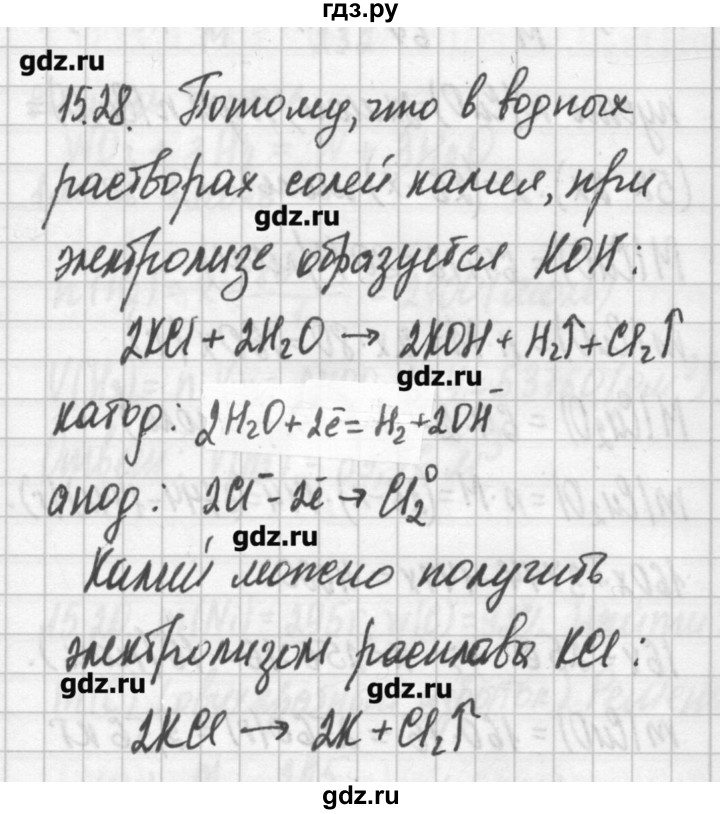 гдз.ру
gdz.ru
15.28. Потому, что в водных
растворах солей калия, при
gdz.ru
электролизе образуется KOH:
2KCl + 2H₂O → 2KOH + H₂↑ + Cl₂↑
gdz.ru
катод: 2H₂O + 2ē = H₂ + 2OH⁻
анод: 2Cl⁻ - 2ē → Cl₂⁰
gdz.ru
Калий можно получить
электролизом расплава KCl:
gdz.ru gdz.ru
2KCl → 2K + Cl₂↑
gdz.ru